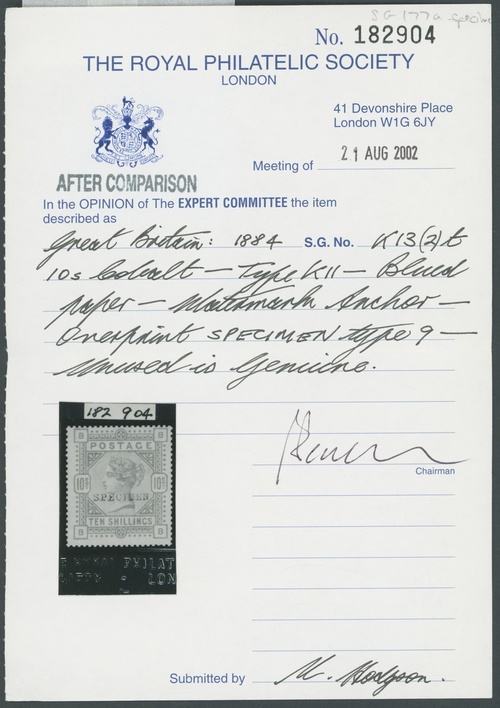 SG 177a Specimen
No. 182904
THE ROYAL PHILATELIC SOCIETY
LONDON
41 Devonshire Place
London W1G 6JY
Meeting of 21 AUG 2002
AFTER COMPARISON
In the OPINION of The EXPERT COMMITTEE the item
described as
Great Britain: 1884 S.G. No. K13(2)t
10s Cobalt — Type KII — Blued
paper — Watermark Anchor —
Overprint SPECIMEN type 9 —
Unused is Genuine.
182 904
B B
POSTAGE
10s 10s
SPECIMEN
TEN SHILLINGS
B B
PHILAT
LON
Chairman
Submitted by M. Hodgson.